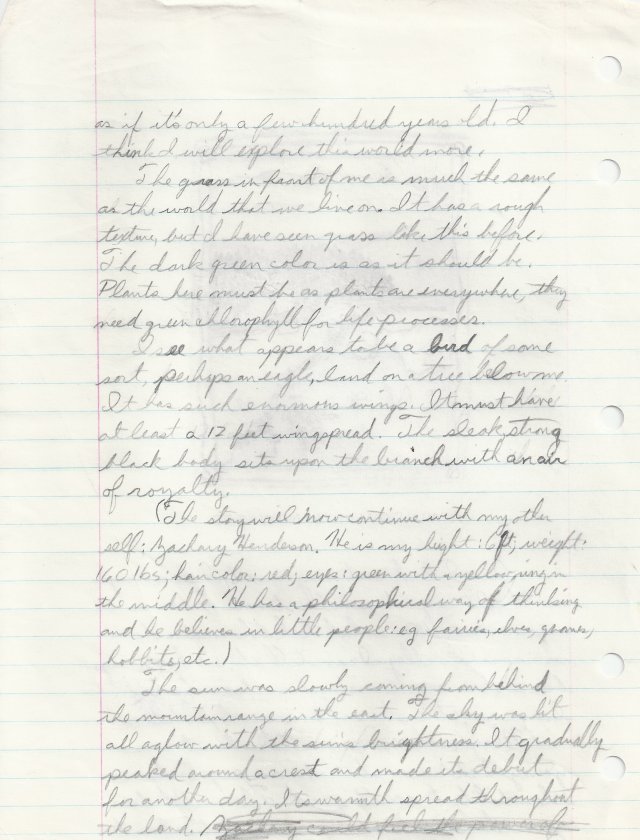 as if it's only a few hundred years old. I
think I will explore this world more.
The grass in front of me is much the same
as the world that we live on. It has a rough
texture, but I have seen grass like this before.
The dark green color is as it should be.
Plants here must be as plants are everywhere, they
need green chlorophyll for life processes.
I see what appears to be a bird of some
sort, perhaps an eagle, land on a tree below me.
It has such enormous wings. It must have
at least a 12 feet wingspread. The sleak, strong
black body sits upon the branch with an air
of royalty.
(The story will now continue with my other
self: Zachary Henderson. He is my hight: 6ft; weight:
160 lbs; hair color: red; eyes: green with a yellow ring in
the middle. He has a philosophical way of thinking
and he believes in little people: eg fairies, elves, gnomes,
hobbits, etc.)
The sun was slowly coming from behind
the mountain range in the east. The sky was lit
all aglow with the suns brightness. It gradually
peaked around a crest and made its debut
for another day. Its warmth spread throughout
the land. Zachary could feel the